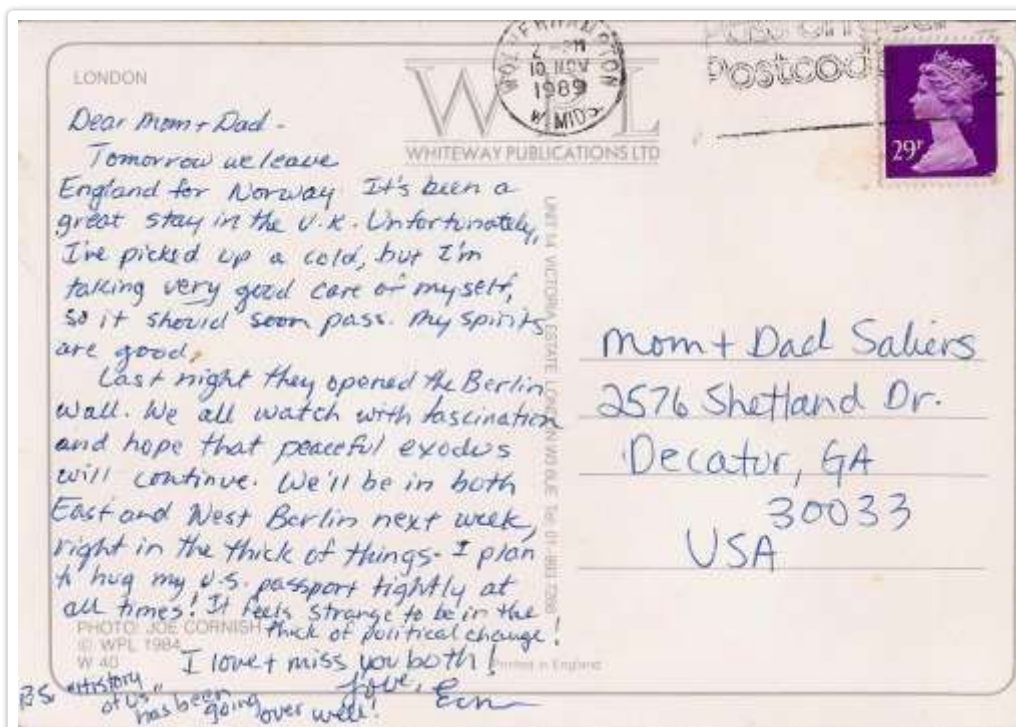 LONDON
WOLVERHAMPTON
2 PM
10 NOV
1989
W. MIDS
Postcod
29P
WPL
WHITEWAY PUBLICATIONS LTD
Dear Mom + Dad -
Tomorrow we leave
England for Norway. It's been a
great stay in the U.K. Unfortunately,
I've picked up a cold, but I'm
taking very good care of myself,
so it should soon pass. My spirits
are good.
Last night they opened the Berlin
Wall. We all watch with fascination
and hope that peaceful exodus
will continue. We'll be in both
East and West Berlin next week,
right in the thick of things. I plan
to hug my U.S. passport tightly at
all times! It feels strange to be in the
thick of political change!
I love + miss you both!
Love,
PS. "History
of Us"
has been
going
over well!
PHOTO: JOE CORNISH
© WPL 1984
W 40
Printed in England
UNIT 14 VICTORIA ESTATE LONDON W3 Tel:
Mom + Dad Saliers
2576 Shetland Dr.
Decatur, GA
30033
USA